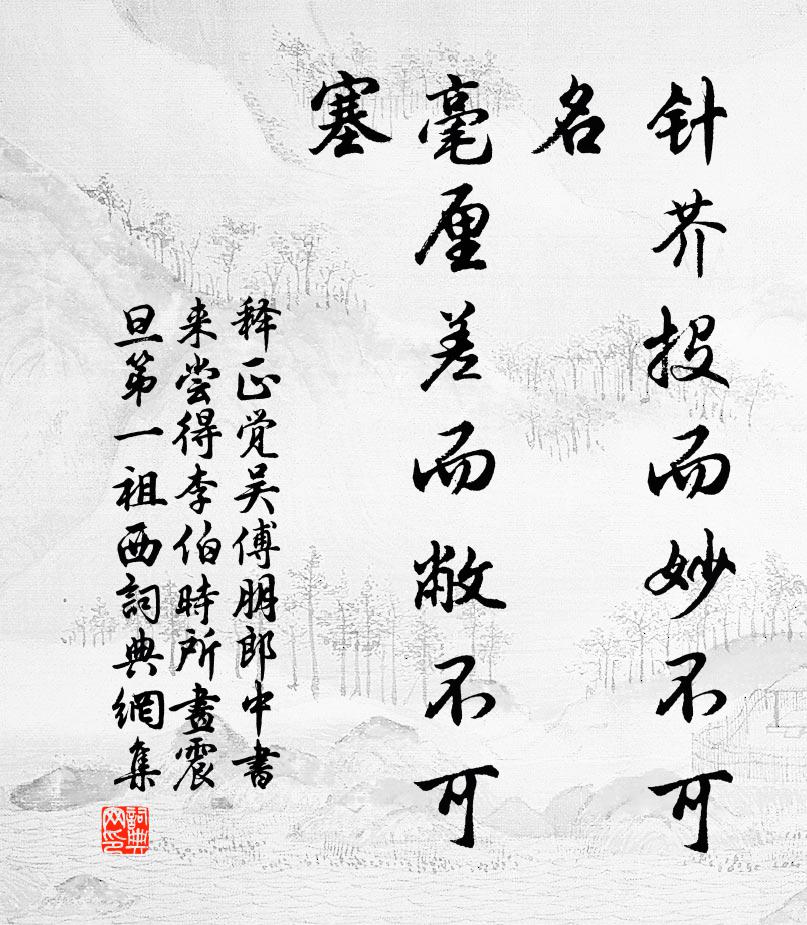 针芥投而妙不可
名
毫厘差而敝不可
塞
释正觉吴傅朋郎中书
来尝得李伯時所畫震
旦第一祖西詞典網集
詞典
网印